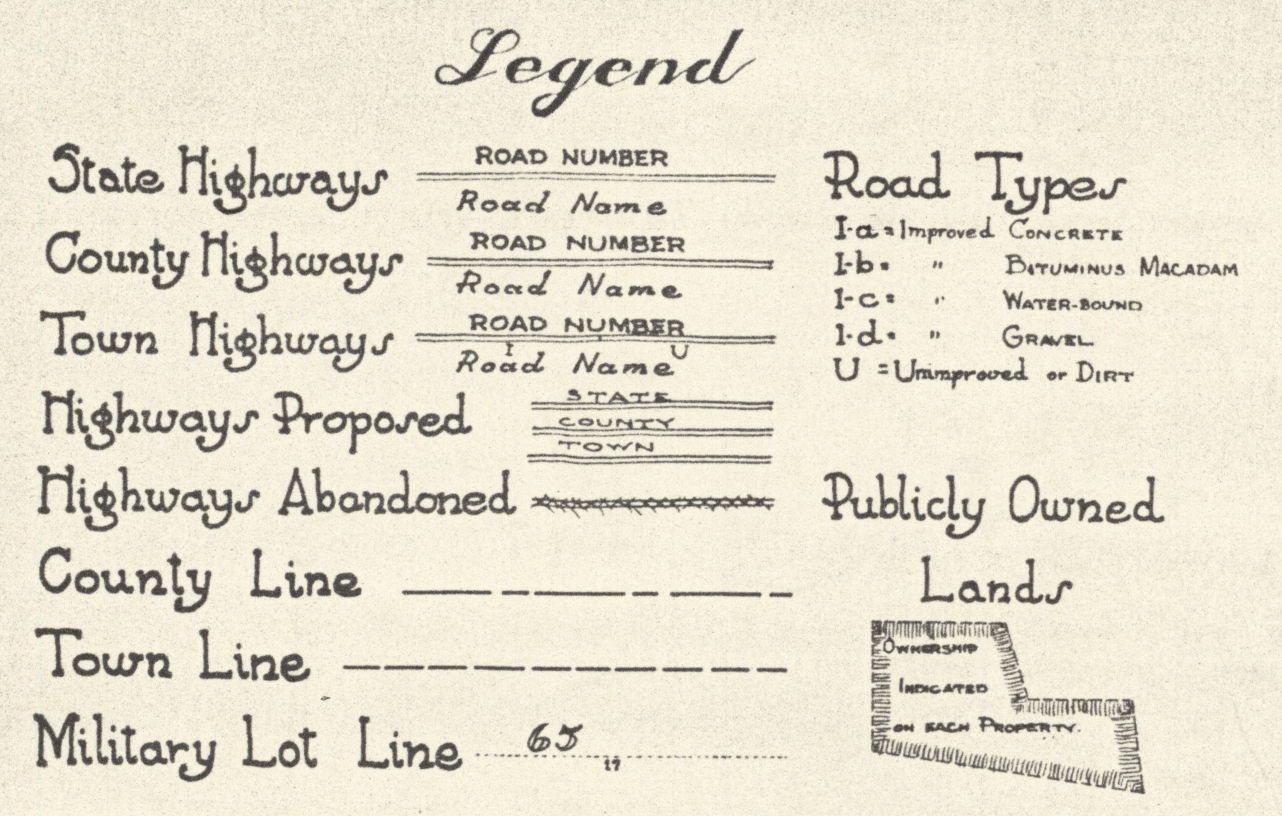 Legend
State Highways
ROAD NUMBER
Road Name
County Highways
ROAD NUMBER
Road Name
Town Highways
ROAD NUMBER
I U
Road Name
Highways Proposed
STATE
COUNTY
TOWN
Highways Abandoned
County Line
Town Line
Military Lot Line
65
17
Road Types
I-a = Improved CONCRETE
I-b = " BITUMINUS MACADAM
I-c = " WATER-BOUND
I-d = " GRAVEL
U = Unimproved or DIRT
Publicly Owned
Lands
OWNERSHIP
INDICATED
ON EACH PROPERTY.